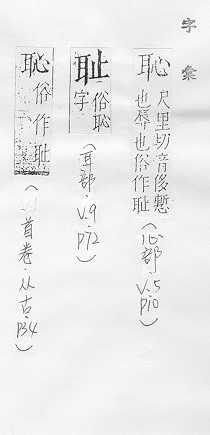 字彙
恥 尺里切音侈慙
也辱也俗作耻
(心部·V.5
P10)
耻 俗恥
字
(耳部·V.9·
P72)
恥 俗作耻
(首卷·从古·
P34)